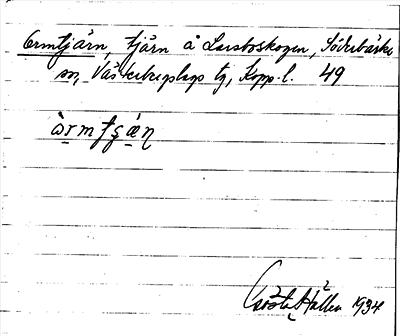 Ormtjärn, tjärn å Larsboskogen, Söderbärke
sn, Västerbergslags tg, Kopp. l. 49
òrmtʂæ̀ɳ
Gösta Hallén 1934